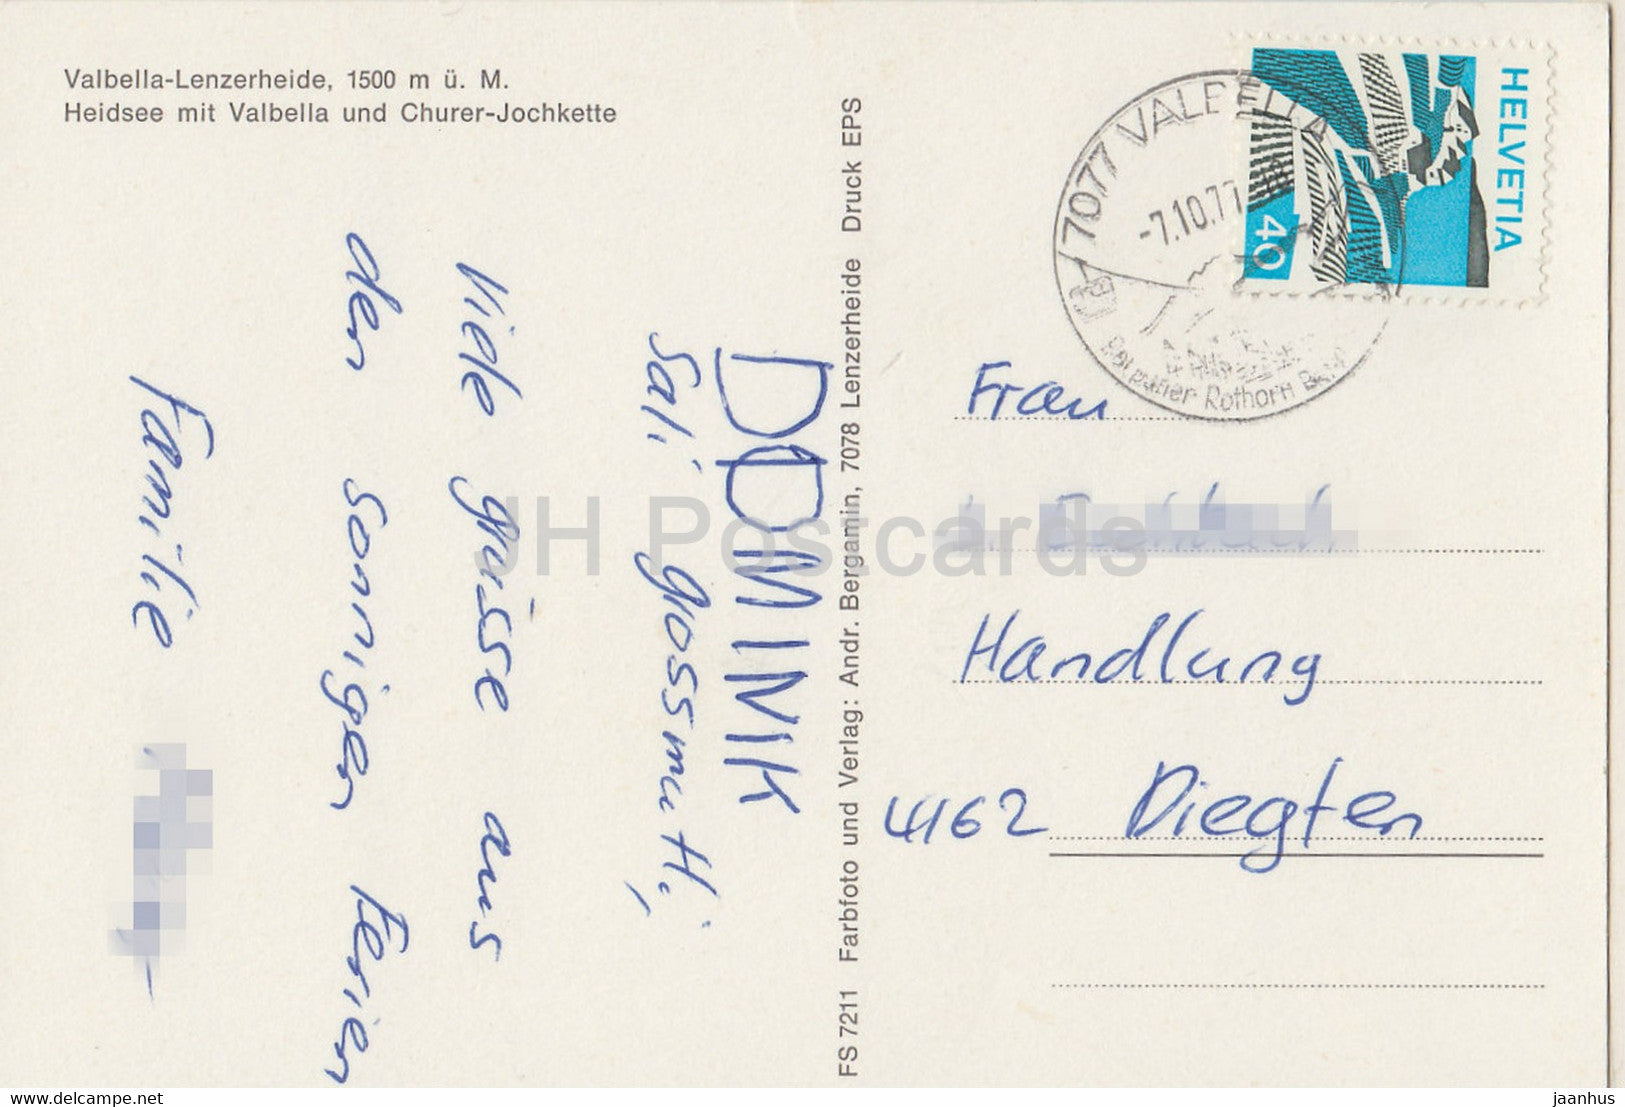 Valbella-Lenzerheide, 1500 m ü. M.
Heidsee mit Valbella und Churer-Jochkette
DOMINIK
Sali grossmuti,
Viele grüsse aus
den sonnigen Ferien
Familie
FS 7211 Farbfoto und Verlag: Andr. Bergamin, 7078 Lenzerheide Druck EPS
7077 VALBELLA
-7.10.77
Rothorn
HELVETIA
40
Frau
Handlung
4462 Diegten
JH Postcards
My city postcards
jaanhus